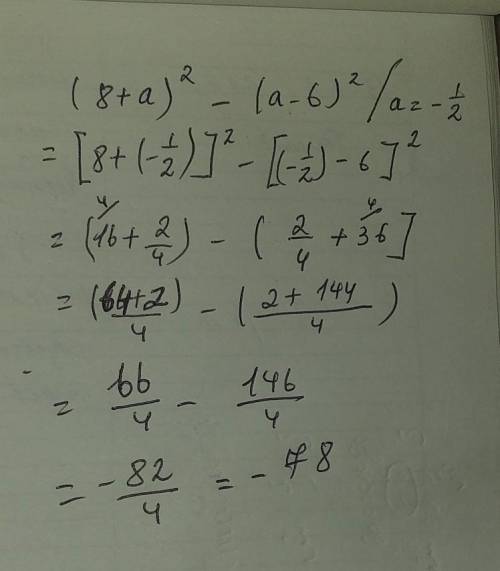 (8+a)² - (a-6)² / a = -1/2
= [8+(-1/2)]² - [(-1/2)-6]²
= (16 + 2/4) - (2/4 + 36]
= (64+2)/4 - (2+144)/4
= 66/4 - 146/4
= -82/4 = -78